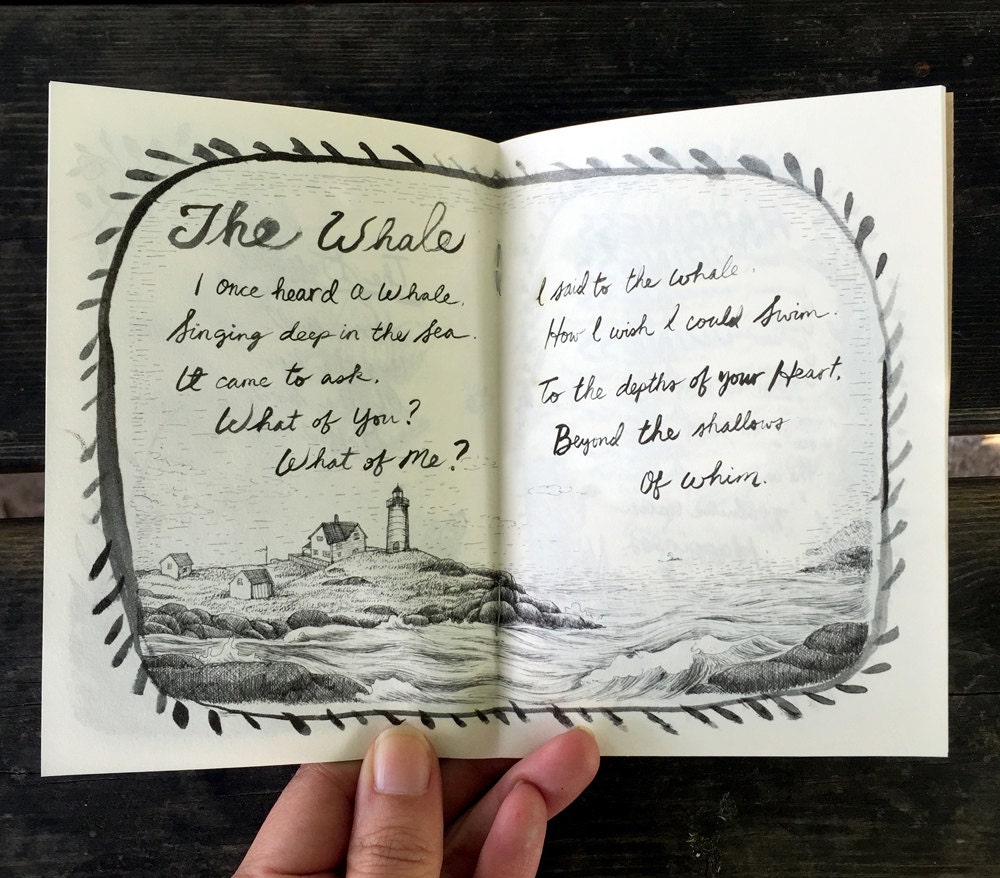 The Whale
I once heard a Whale.
Singing deep in the Sea.
It came to ask.
What of You?
What of Me?
I said to the whale.
How I wish I could Swim.
To the depths of your Heart.
Beyond the shallows
Of whim.